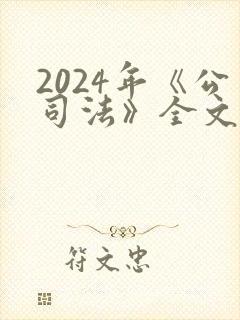 2024年《公
司法》全文
符文忠